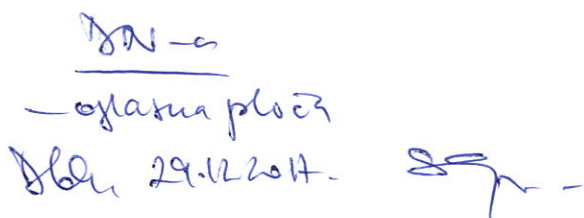 DN-a
- oglasna ploča
29.12.2017.